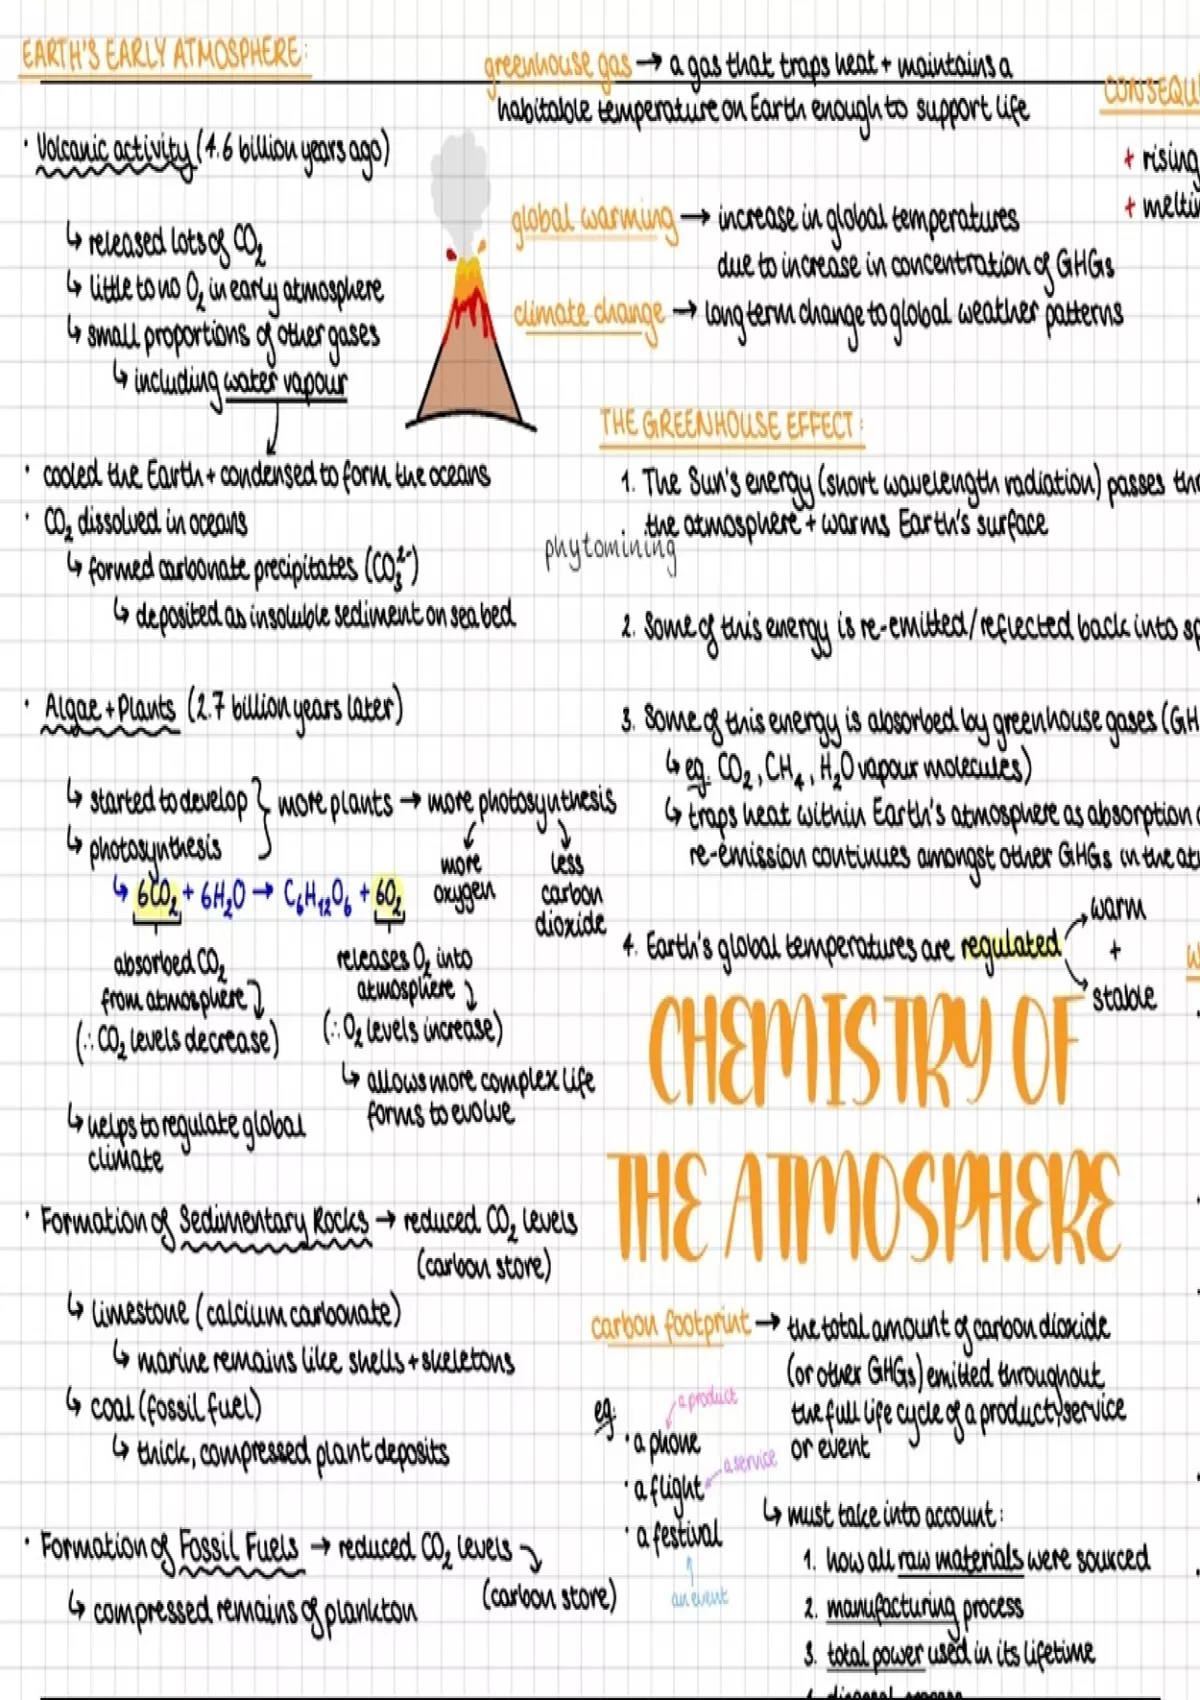 EARTH'S EARLY ATMOSPHERE:
· Volcanic activity (4.6 billion years ago)
↳ released lots of CO₂
↳ little to no O₂ in early atmosphere
↳ small proportions of other gases
↳ including water vapour
· cooled the Earth + condensed to form the oceans
· CO₂ dissolved in oceans
↳ formed carbonate precipitates (CO₃²⁻)
↳ deposited as insoluble sediment on sea bed
· Algae + Plants (2.7 billion years later)
↳ started to develop } more plants → more photosynthesis
↳ photosynthesis
more
oxygen
less
carbon
dioxide
↳ 6CO₂ + 6H₂O → C₆H₁₂O₆ + 6O₂
absorbed CO₂
from atmosphere
(∴ CO₂ levels decrease)
releases O₂ into
atmosphere
(∴ O₂ levels increase)
↳ allows more complex life
forms to evolve
↳ helps to regulate global
climate
· Formation of Sedimentary Rocks → reduced CO₂ levels
(carbon store)
↳ limestone (calcium carbonate)
↳ marine remains like shells + skeletons
↳ coal (fossil fuel)
↳ thick, compressed plant deposits
· Formation of Fossil Fuels → reduced CO₂ levels
(carbon store)
↳ compressed remains of plankton
greenhouse gas → a gas that traps heat + maintains a
habitable temperature on Earth enough to support life
global warming → increase in global temperatures
due to increase in concentration of GHGs
climate change → long term change to global weather patterns
CONSEQU
+ rising
+ meltin
THE GREENHOUSE EFFECT:
1. The Sun's energy (short wavelength radiation) passes thr
the atmosphere + warms Earth's surface
phytomining
2. Some of this energy is re-emitted/reflected back into sp
3. Some of this energy is absorbed by greenhouse gases (GH
↳ eg. CO₂, CH₄, H₂O vapour molecules)
↳ traps heat within Earth's atmosphere as absorption
re-emission continues amongst other GHGs in the at
4. Earth's global temperatures are regulated
warm
+
stable
CHEMISTRY OF
THE ATMOSPHERE
carbon footprint → the total amount of carbon dioxide
(or other GHGs) emitted throughout
the full life cycle of a product, service
or event
eg.
· a phone
a product
· a flight
a service
· a festival
an event
↳ must take into account:
1. how all raw materials were sourced
2. manufacturing process
3. total power used in its lifetime